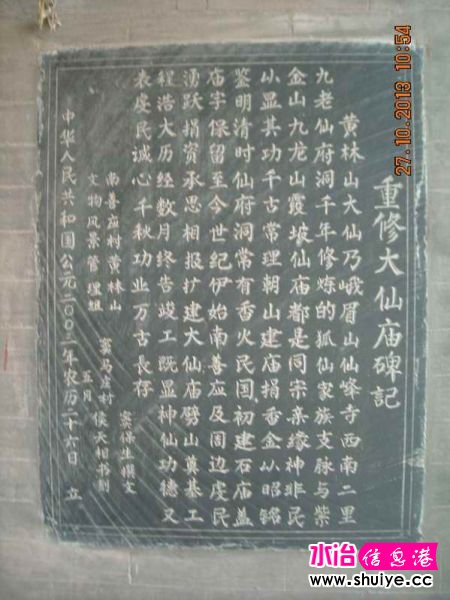 重修大仙庙碑记
黄林山大仙乃峨眉山仙峰寺西南二里
九老仙府洞千年修炼的狐仙家族支脉与紫
金山九龙山霞坡仙庙都是同宗亲缘神非民
小显其功千古常理朝山建庙捐香金以昭铭
鉴明清时仙府洞常有香火民国初建石庙盖
庙宇保留至今世纪伊始南善应及周边虔民
涌跃捐资承思相报扩建大仙庙劈山奠基工
程浩大历经数月终告竣工既显神仙功德又
表受民诚心千秋功业万古长存
窦保生撰文
南善应村黄林山
窦马虐村侯天相书刻
文物风景管理组
中华人民共和国公元二00三年农历五月二十六日 立
27.10.2013 10:54
水冶信息港
www.shuiye.cc